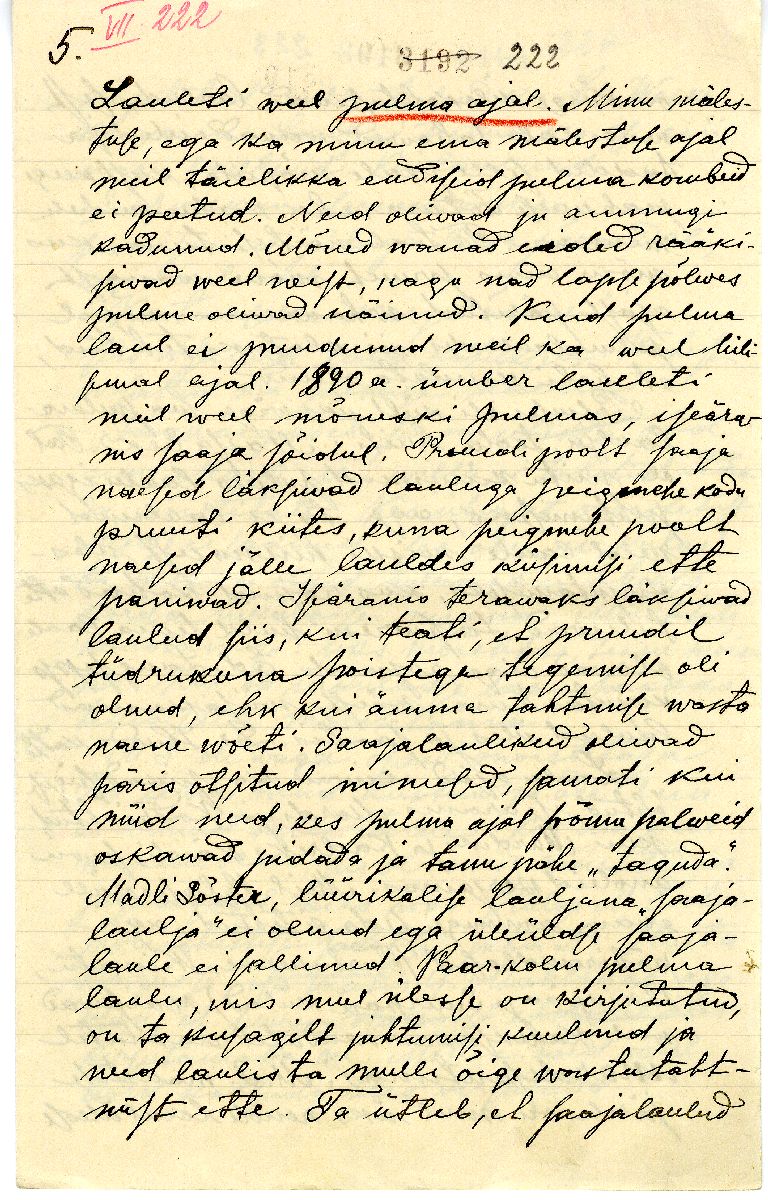 5. VII 222
3192 222
Lauleti weel pulma ajal. Minu mäles-
tuse, ega ka minu ema mälestuse ajal
meil täielikka endiseid pulma kombeid
ei peetud. Need oliwad ju ammugi
kadunud. Mõned wanad eided rääki-
siwad weel neist, nagu nad lapse põlwes
pulme oliwad näinud. Kuid pulma
laul ei puudunud meil ka weel hili-
semal ajal. 1890 a. ümber lauleti
meil weel mõneski pulmas, iseära-
nis saaja sõidul. Pruudi poolt saaja
naesed läksiwad lauluga peigmehe kodu
pruuti kiites, kuna peigmehe poolt
naesed jälle lauldes küsimisi ette
paniwad. Iseäranis terawaks läksiwad
laulud siis, kui teati, et pruudil
tüdrukuna poistega tegemist oli
olnud, ehk kui ämma tahtmise wasta
naene wõeti. Saajalaulikud oliwad
päris otsitud inimesed, samati kui
nüid need, kes pulma ajal sööma palweid
oskawad pidada ja tanu pähe „taguda“.
Madli Söster, lüürikalise lauljana „saaja-
laulja“ ei olnud ega üleüldse saaja-
laule ei sallinud. Paar-kolm pulma
laulu, mis mul ülesse on kirjutatud,
on ta kusagilt juhtumisi kuulnud ja
need laulis ta mulle õige wastutaht-
mist ette. Ta ütleb, et saajalaulud